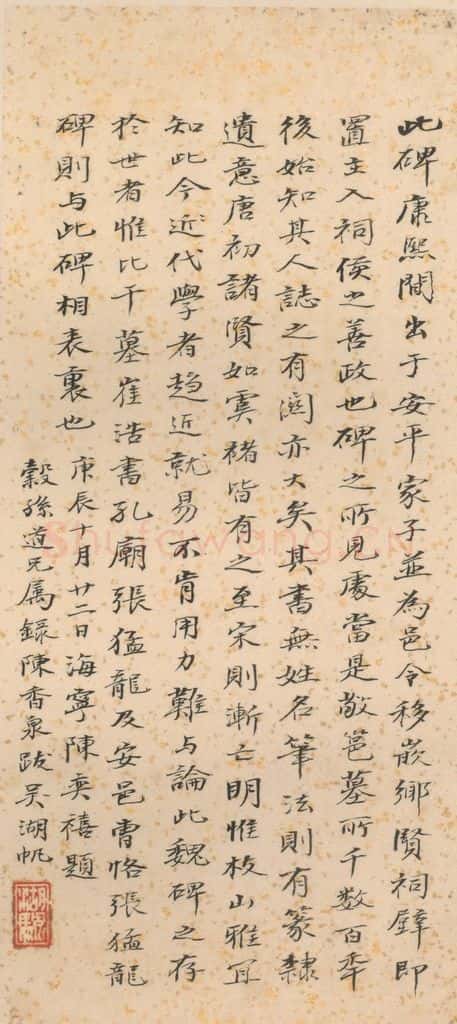 此碑康熙間出于安平家子並為邑令移嵌鄉賢祠壁即
置主入祠侯之善政也碑之所見處當是敬邕墓所千数百年
後始知其人誌之有関亦大矣其書無姓名筆法則有篆隸
遺意唐初諸賢如虞褚皆有之至宋則漸亡明惟枝山雅宜
知此今近代學者趋近就易不肯用力難与論此魏碑之存
於世者惟比干墓崔浩書孔廟張猛龍及安邑曹恪張猛龍
碑則与此碑相表裏也
庚辰十月廿二日海寧陳奕禧題
穀孫道兄属錄陳香泉跋吳湖帆